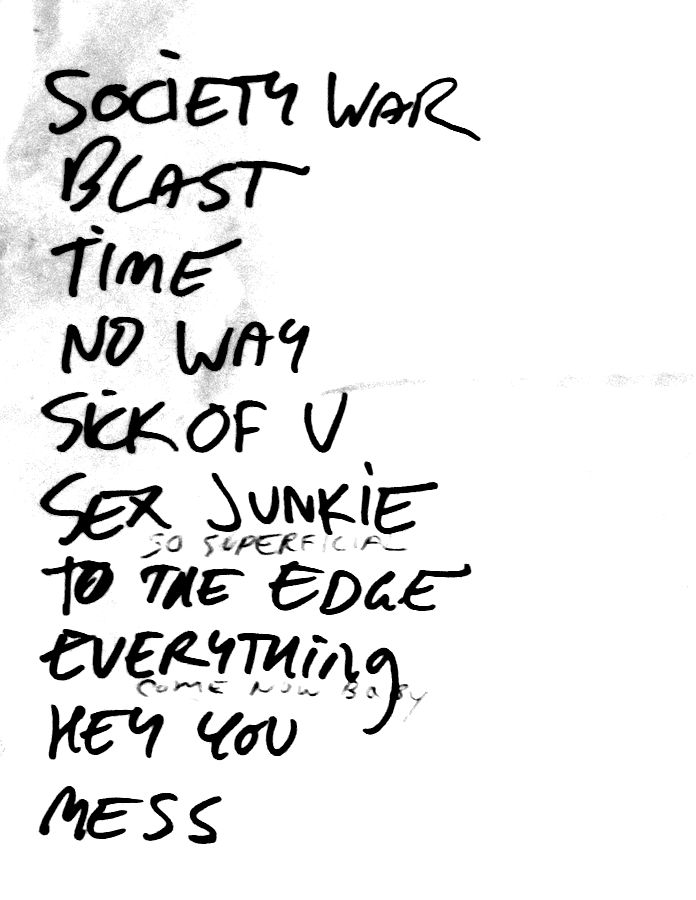 SOCIETY WAR
BLAST
TIME
NO WAY
SICK OF U
SEX JUNKIE
SO SUPERFICIAL
TO THE EDGE
EVERYTHing
COME NOW BaBy
HEY YOU
MESS